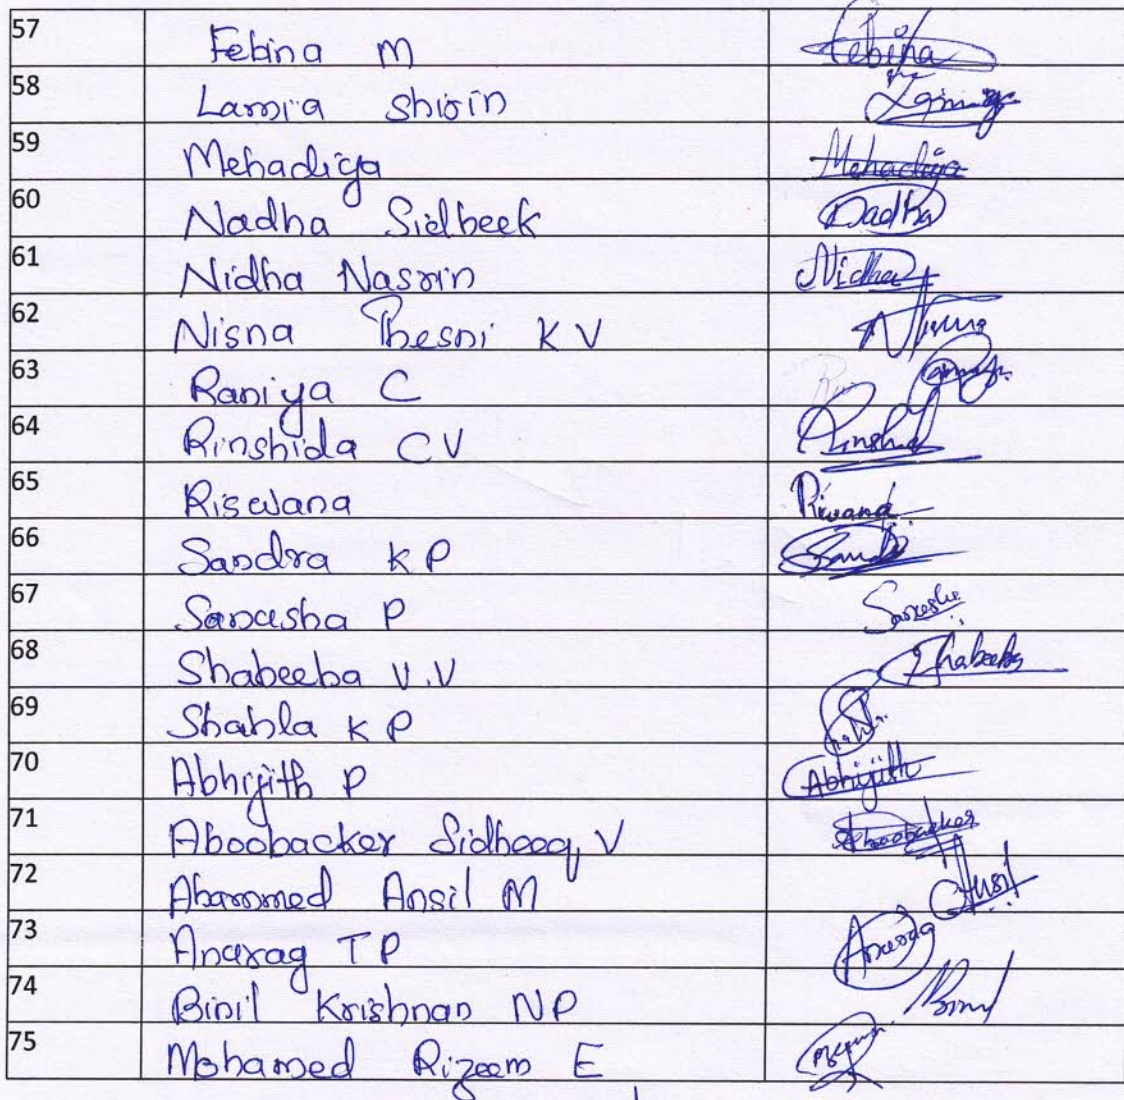 57 Febina M Febina
58 Lamia Shirin Lamia
59 Mehadiya Mehadiya
60 Nadha Sidheek Nadha
61 Nidha Nasrin Nidha
62 Nisna Thesni K V
63 Raniya C
64 Rinshida C V Rinshid
65 Riswana Riswana
66 Sandra K P
67 Sanusha P
68 Shabeeba V.V Shabeeba
69 Shahla K P
70 Abhijith P Abhijith
71 Aboobacker Sidheeq V Aboobacker
72 Ahammed Ansil M Ansil
73 Anurag T P Anurag
74 Binil Krishnan N P
75 Mohamed Rizeem E